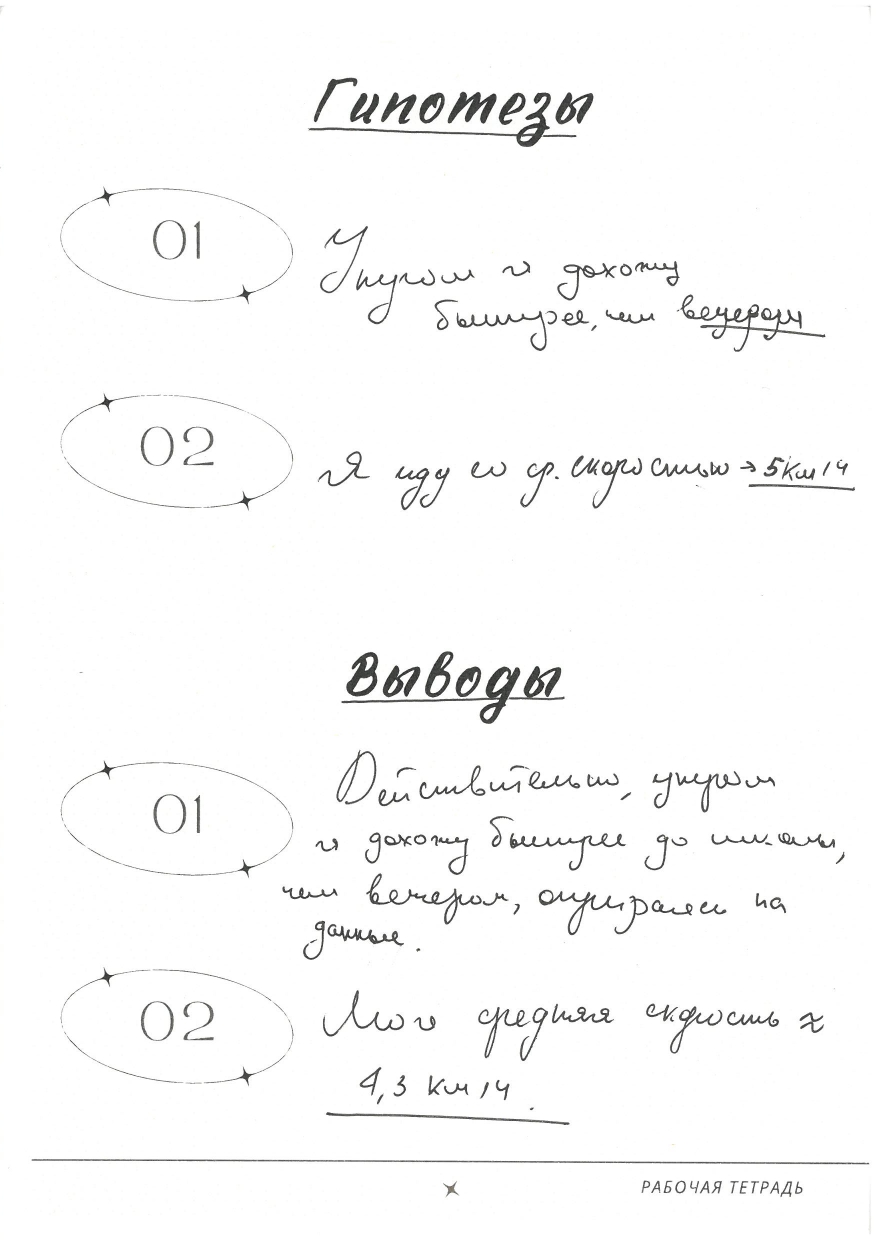 Гипотезы
01
Утром я дохожу
быстрее, чем вечером
02
Я иду со ср. скоростью → 5 км/ч
Выводы
01
Действительно, утром
я дохожу быстрее до школы,
чем вечером, опираясь на
данные.
02
Моя средняя скорость ≈
4,3 км/ч.
РАБОЧАЯ ТЕТРАДЬ